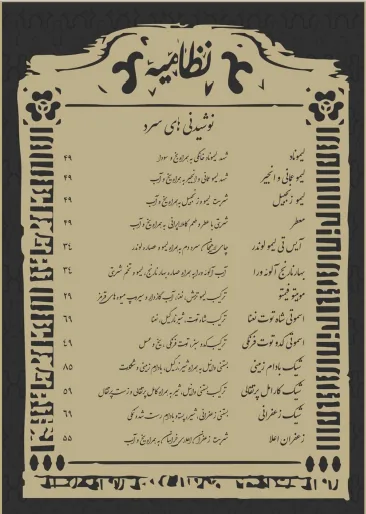 نظامیه
نوشیدنی های سرد
لیموناد شهد لیموناد خانگی به همراه یخ و سودا ۴۹
لیمو عمانی و انجیر شهد لیمو عمانی و انجیر به همراه یخ و آب ۴۹
لیمو زنجبیل شربت لیمو و زنجبیل به همراه یخ و آب ۴۹
معطر شربتی با عطر و طعم کاملا ایرانی به همراه یخ و آب ۴۹
آیس تی لیمو لوندر چای سرد دم به همراه لیمو و عصاره لوندر ۳۴
بهار نارنج آلوئه ورا آب آلوئه ورا به همراه عصاره بهار نارنج، لیمو و تخم شربتی ۳۴
موهیتو فیتو ترکیب لیمو ترش، نعنا، آب گازدار و سیروپ میوه های قرمز ۲۹
اسموتی شاه توت نعنا ترکیب شاه توت، شیر نارگیل، نعنا ۶۹
اسموتی کدو توت فرنگی ترکیب کدو سبز، توت فرنگی، یخ و عسل ۴۹
شیک بادام زمینی بستنی وانیل به همراه شیر نارگیل، بادام زمینی و شکلات ۸۵
شیک کارامل پرتقالی ترکیب بستنی وانیل، شیر به همراه کارامل پرتقالی و زست پرتقال ۵۹
شیک زعفرانی بستنی زعفرانی، شیر، پسته و بادام رست شده و نمکی ۶۹
زعفران اعلا شربت زعفران اعلای خراسان به همراه یخ و آب ۵۵